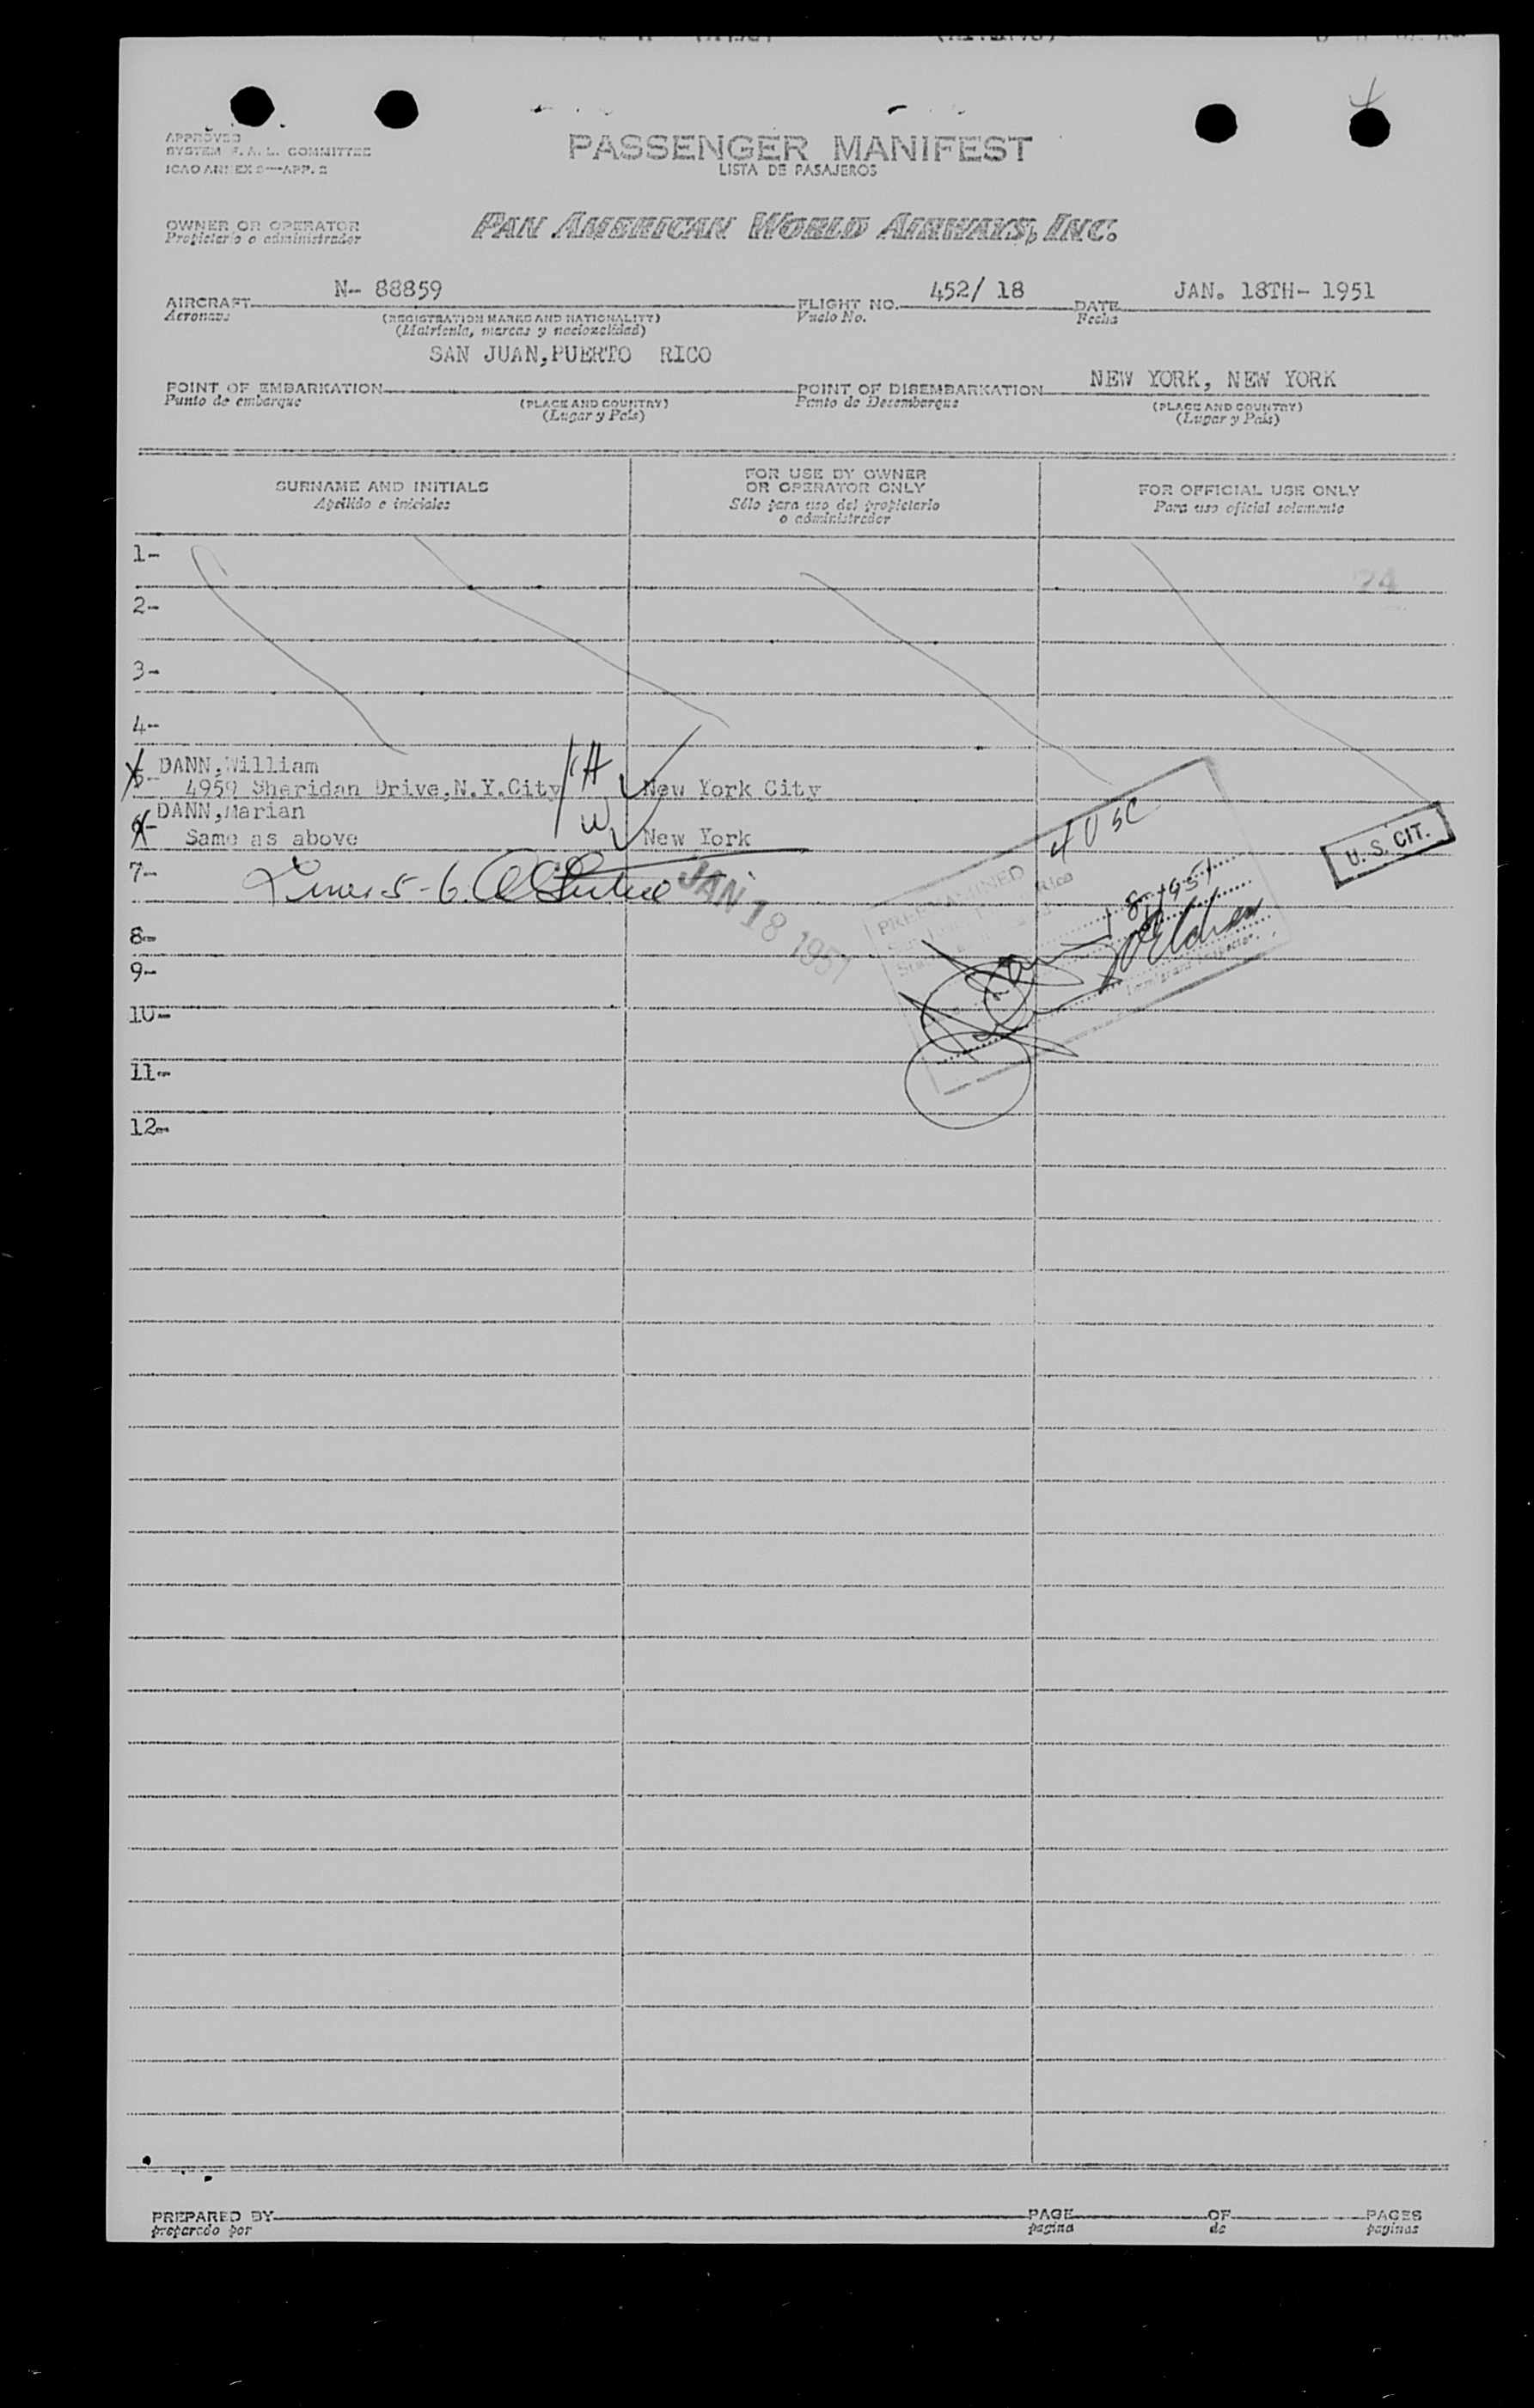 APPROVED
SYSTEM F. A. L. COMMITTEE
ICAO ANNEX 9—APP. 2
PASSENGER MANIFEST
LISTA DE PASAJEROS
OWNER OR OPERATOR
Propietario o administrador
PAN AMERICAN WORLD AIRWAYS, INC.
AIRCRAFT N- 88859 FLIGHT NO. 452/ 18 DATE JAN. 18TH- 1951
Aeronave (REGISTRATION MARKS AND NATIONALITY) Vuelo No. Fecha
(Matrícula, marcas y nacionalidad)
SAN JUAN,PUERTO RICO
POINT OF EMBARKATION POINT OF DISEMBARKATION NEW YORK, NEW YORK
Punto de embarque (PLACE AND COUNTRY) Punto de Desembarque (PLACE AND COUNTRY)
(Lugar y País) (Lugar y País)
SURNAME AND INITIALS FOR USE BY OWNER OR OPERATOR ONLY FOR OFFICIAL USE ONLY
Apellido e iniciales Sólo para uso del propietario o administrador Para uso oficial solamente
1-
24
2-
3-
4-
5- DANN,William
4959 Sheridan Drive,N.Y.City H New York City
6- DANN,Marian
Same as above W New York
4 USC
U. S. CIT.
7- Lines 5-6
JAN 18 1951
PREEXAMINED
Rico
8-
9-
Immigrant Inspector.
10-
11-
12-
PREPARED BY PAGE OF PAGES
preparado por pagina de paginas